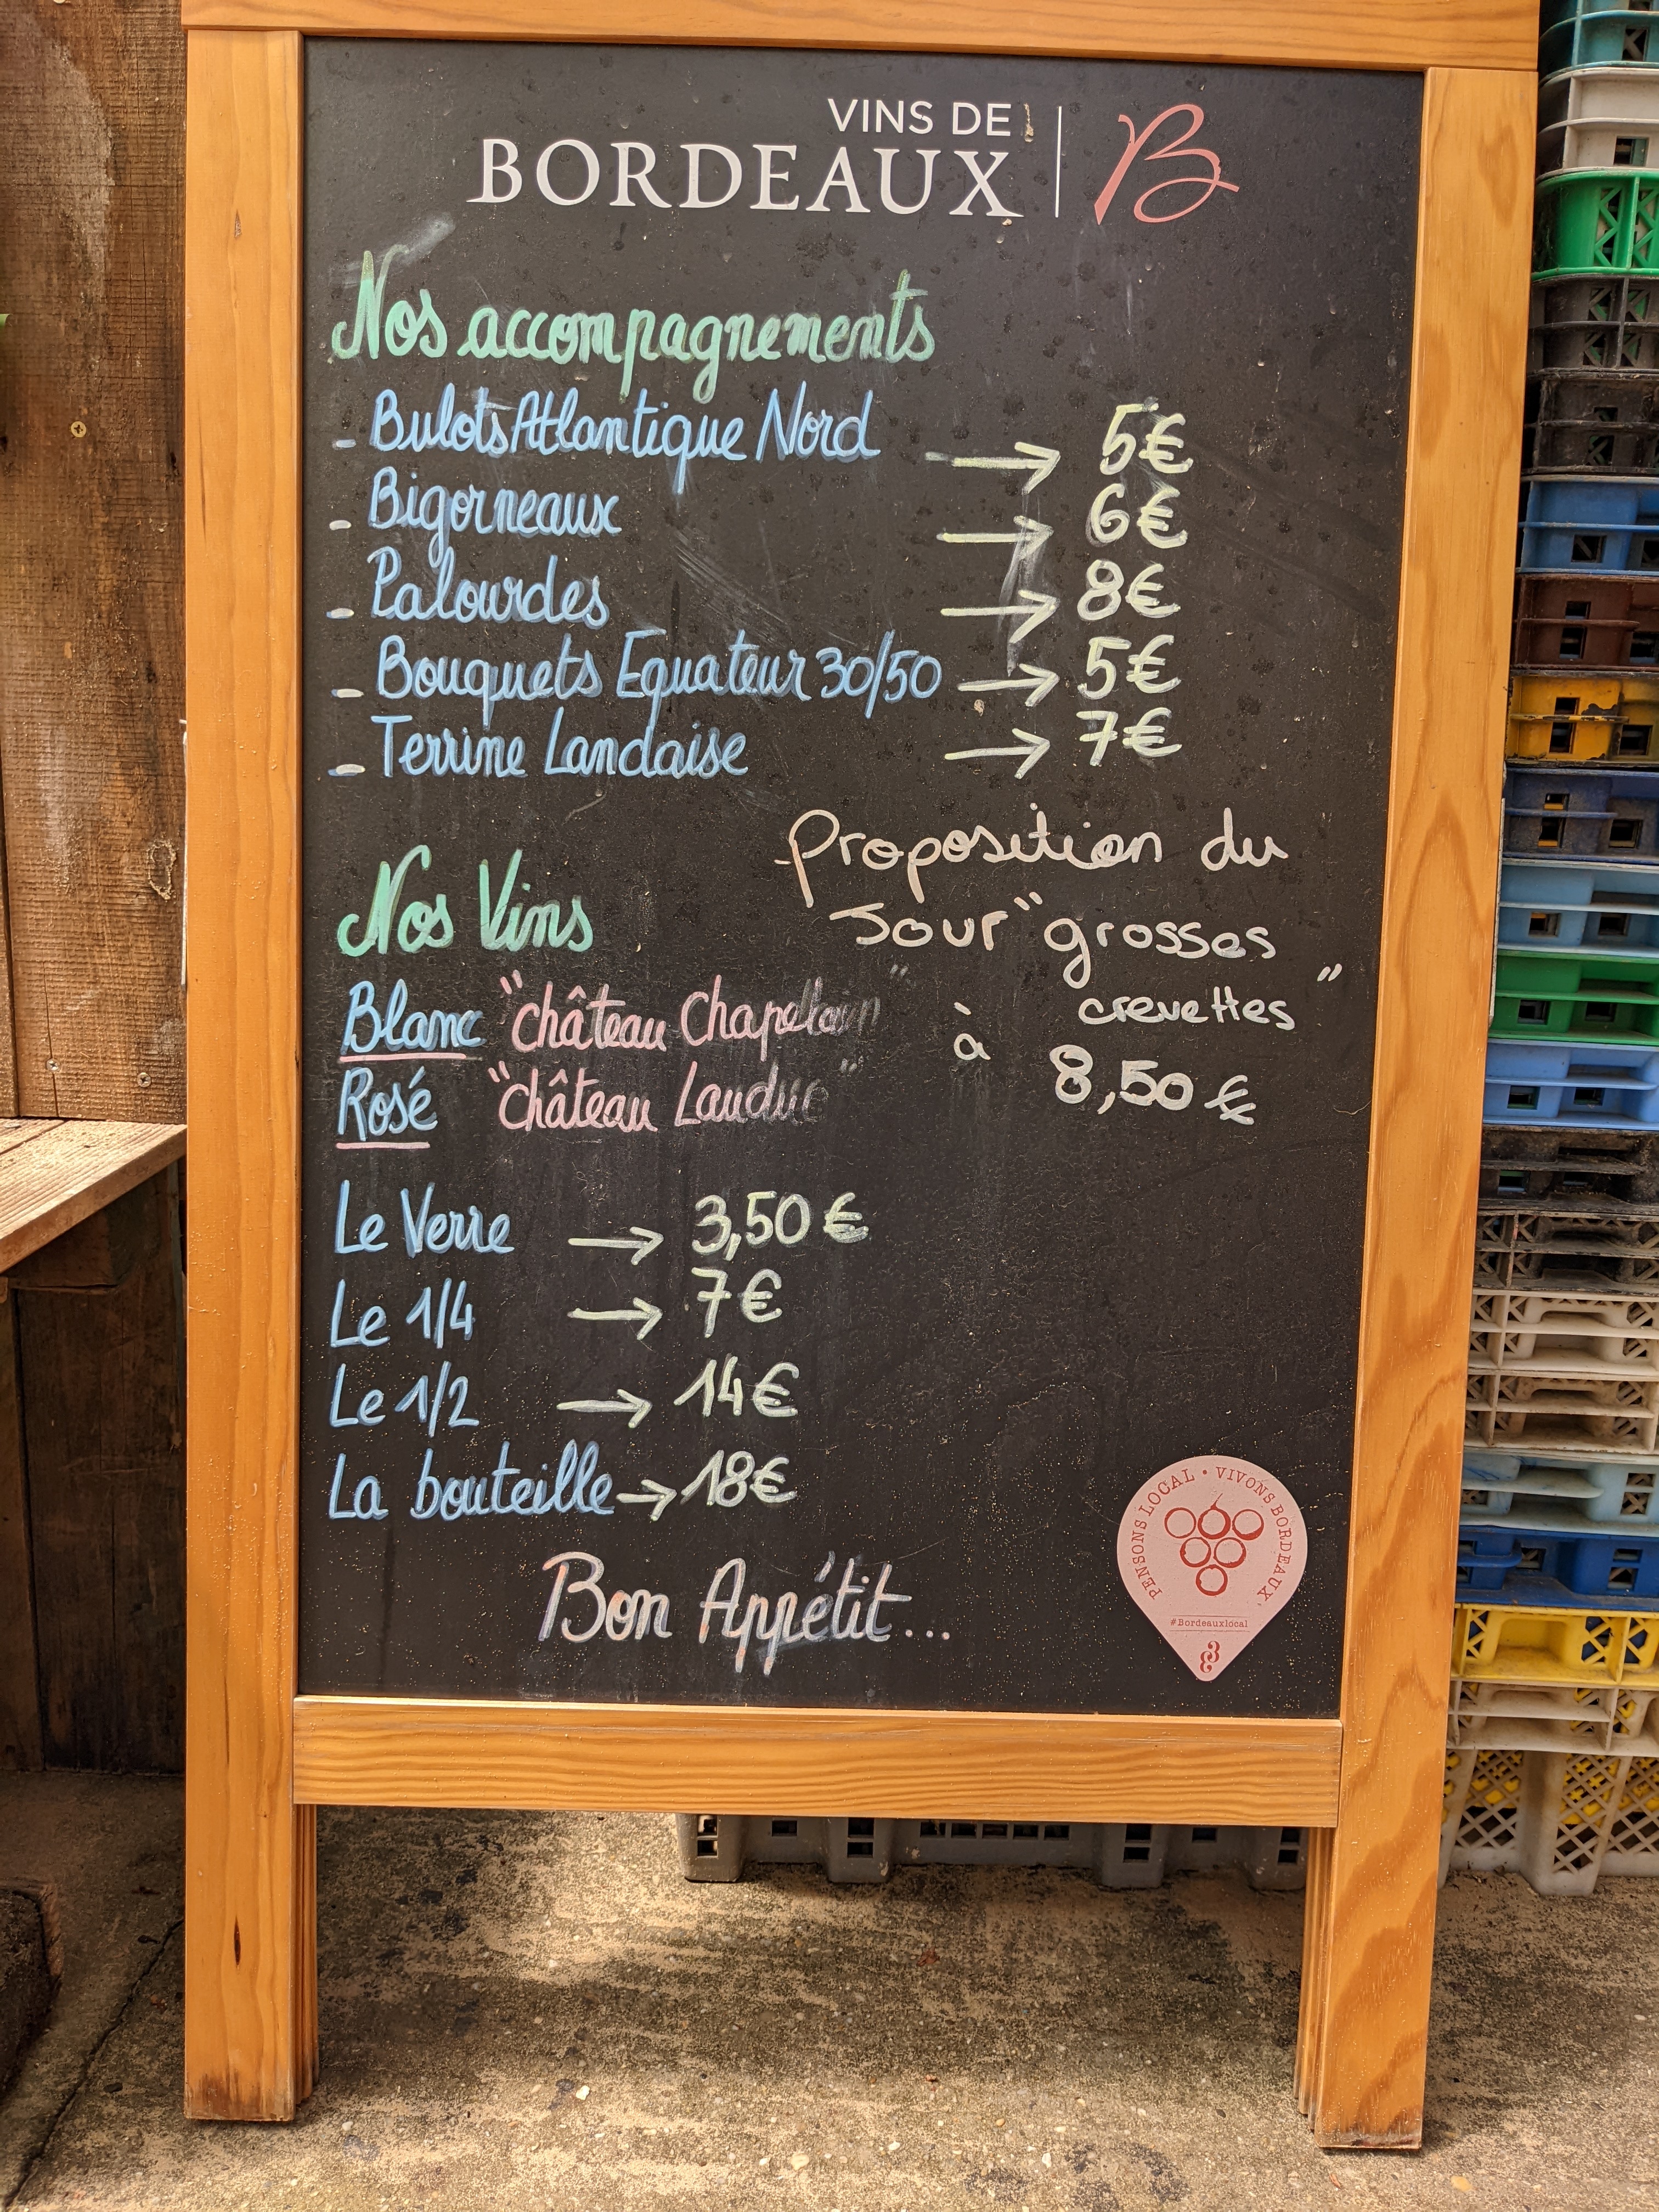 VINS DE
BORDEAUX B
Nos accompagnements
- Bulots Atlantique Nord → 5€
- Bigorneaux → 6€
- Palourdes → 8€
- Bouquets Equateur 30/50 → 5€
- Terrine Landaise → 7€
Proposition du
Jour "grosses
crevettes"
à 8,50 €
Nos Vins
Blanc "château Chapelain"
Rosé "château Lauduc"
Le Verre → 3,50 €
Le 1/4 → 7€
Le 1/2 → 14€
La bouteille → 18€
Bon Appétit...
PENSONS LOCAL • VIVONS BORDEAUX
#Bordeauxlocal